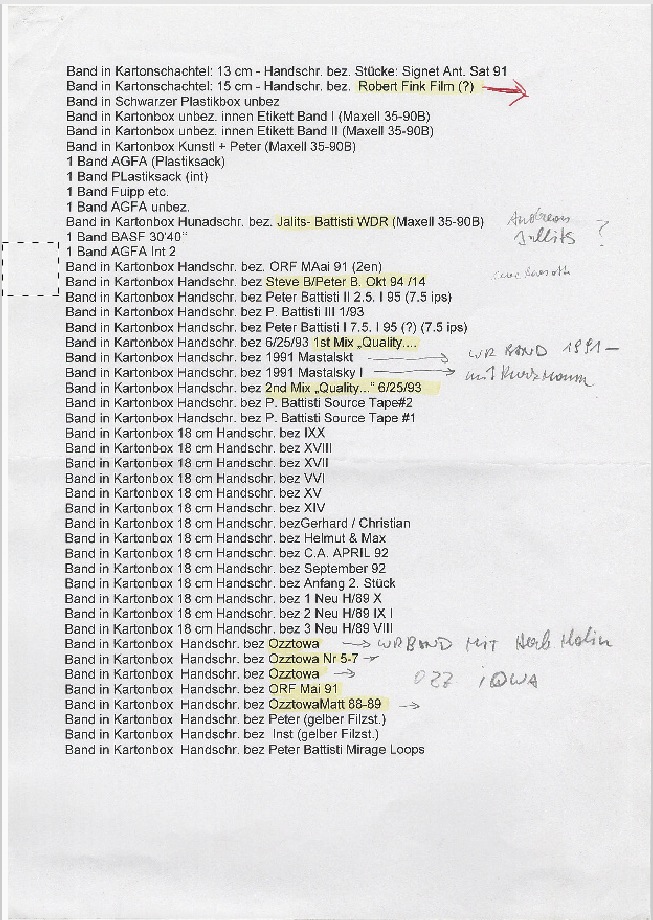 Band in Kartonschachtel: 13 cm - Handschr. bez. Stücke: Signet Ant. Sat 91
Band in Kartonschachtel: 15 cm - Handschr. bez. Robert Fink Film (?)
Band in Schwarzer Plastikbox unbez
Band in Kartonbox unbez. innen Etikett Band I (Maxell 35-90B)
Band in Kartonbox unbez. innen Etikett Band II (Maxell 35-90B)
Band in Kartonbox Kunstl + Peter (Maxell 35-90B)
1 Band AGFA (Plastiksack)
1 Band PLastiksack (int)
1 Band Fuipp etc.
1 Band AGFA unbez.
Band in Kartonbox Hunadschr. bez. Jalits- Battisti WDR (Maxell 35-90B) Andreas
Jallits ?
1 Band BASF 30'40"
1 Band AGFA Int 2
Band in Kartonbox Handschr. bez. ORF MAai 91 (2en)
Band in Kartonbox Handschr. bez Steve B/Peter B. Okt 94 /14
Band in Kartonbox Handschr. bez Peter Battisti II 2.5. I 95 (7.5 ips)
Band in Kartonbox Handschr. bez P. Battisti III 1/93
Band in Kartonbox Handschr. bez Peter Battisti I 7.5. I 95 (?) (7.5 ips)
Band in Kartonbox Handschr. bez 6/25/93 1st Mix „Quality....
Band in Kartonbox Handschr. bez 1991 Mastalskt WR BAND 1991 –
Band in Kartonbox Handschr. bez 1991 Mastalsky I mit Kurzmann
Band in Kartonbox Handschr. bez 2nd Mix „Quality...“ 6/25/93
Band in Kartonbox Handschr. bez P. Battisti Source Tape#2
Band in Kartonbox Handschr. bez P. Battisti Source Tape #1
Band in Kartonbox 18 cm Handschr. bez IXX
Band in Kartonbox 18 cm Handschr. bez XVIII
Band in Kartonbox 18 cm Handschr. bez XVII
Band in Kartonbox 18 cm Handschr. bez VVI
Band in Kartonbox 18 cm Handschr. bez XV
Band in Kartonbox 18 cm Handschr. bez XIV
Band in Kartonbox 18 cm Handschr. bezGerhard / Christian
Band in Kartonbox 18 cm Handschr. bez Helmut & Max
Band in Kartonbox 18 cm Handschr. bez C.A. APRIL 92
Band in Kartonbox 18 cm Handschr. bez September 92
Band in Kartonbox 18 cm Handschr. bez Anfang 2. Stück
Band in Kartonbox 18 cm Handschr. bez 1 Neu H/89 X
Band in Kartonbox 18 cm Handschr. bez 2 Neu H/89 IX I
Band in Kartonbox 18 cm Handschr. bez 3 Neu H/89 VIII
Band in Kartonbox Handschr. bez Ozztowa WR BAND MIT Herb
Band in Kartonbox Handschr. bez Ozztowa Nr 5-7
Band in Kartonbox Handschr. bez Ozztowa OZZ iOWA
Band in Kartonbox Handschr. bez ORF Mai 91
Band in Kartonbox Handschr. bez OzztowaMatt 88-89
Band in Kartonbox Handschr. bez Peter (gelber Filzst.)
Band in Kartonbox Handschr. bez Inst (gelber Filzst.)
Band in Kartonbox Handschr. bez Peter Battisti Mirage Loops